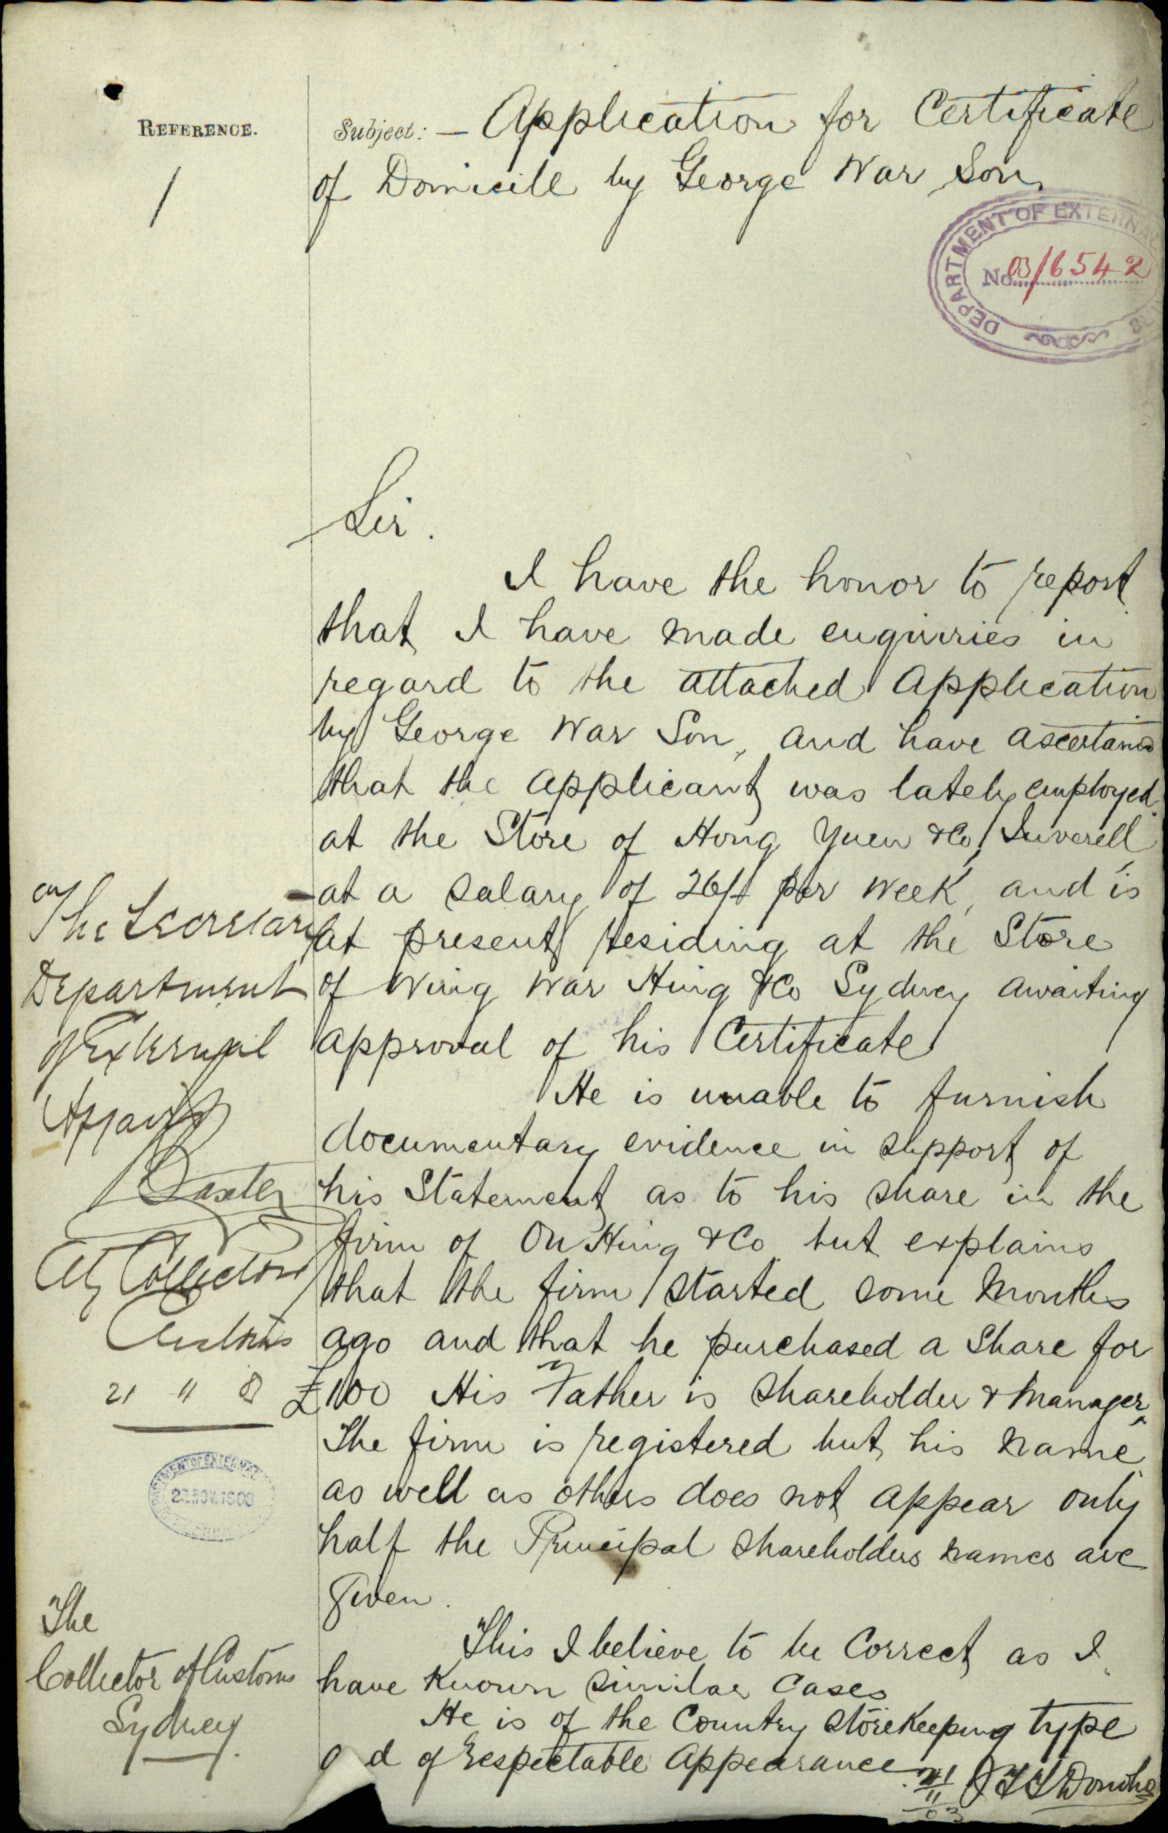 REFERENCE.
1
Subject: — Application for Certificate
of Domicile by George War Son
DEPARTMENT OF EXTERNAL
No 03/6542
Sir.
I have the honor to report
that I have made enquiries in
regard to the attached Application
by George War Son, and have ascertained
that the applicant was lately employed
at the Store of Hong Yuen & Co, Inverell,
at a salary of 26/- per week, and is
at present residing at the Store
of Wing War Hing & Co Sydney awaiting
approval of his Certificate
He is unable to furnish
documentary evidence in support of
his Statement as to his share in the
firm of On Hing & Co but explains
that the firm started some Months
ago and that he purchased a Share for
£100 His Father is Shareholder & Manager.
The firm is registered but his name
as well as others does not appear only
half the Principal Shareholders names are
given.
This I believe to be Correct as I
have Known similar Cases
He is of the Country Storekeeping type
d of respectable Appearance.
21/11/03
The Secretary
Department
of External
Affairs
Baxter
Collector
Customs
21 11
The
Collector of Customs
Sydney.